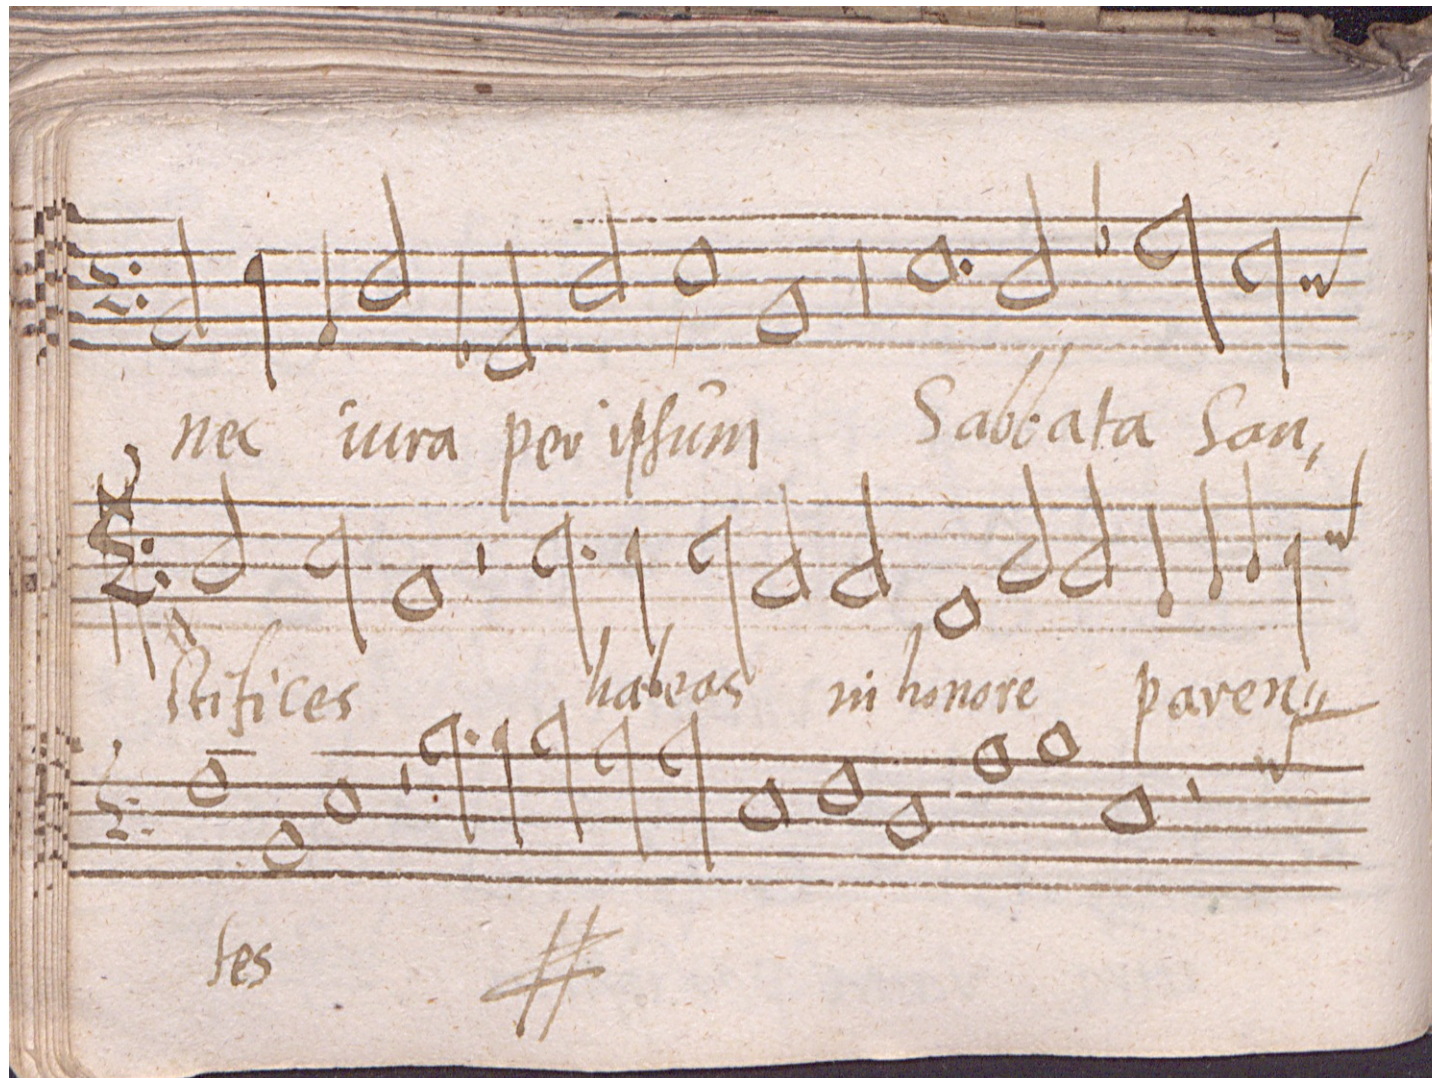 nec iura per ipsūm Sabbata San,
ctifices habeas in honore paren,,
tes